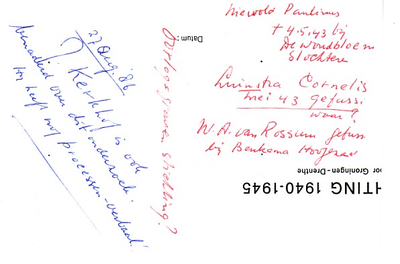 Niewold Paulinus
+ 4.5.43 bij
De Woudbloem
Slochteren
Luinstra Cornelis
mei 43 gefuss.
waar?
W. A. van Rossum gefuss.
bij Benkema Hoogezand
or Groningen-Drenthe
HTING 1940-1945
Datum:
Oorlogsgraven stichting?
27 aug '86
J. Kerkhof is ook
benaderd over dit onderzoek.
processen-verbaal!